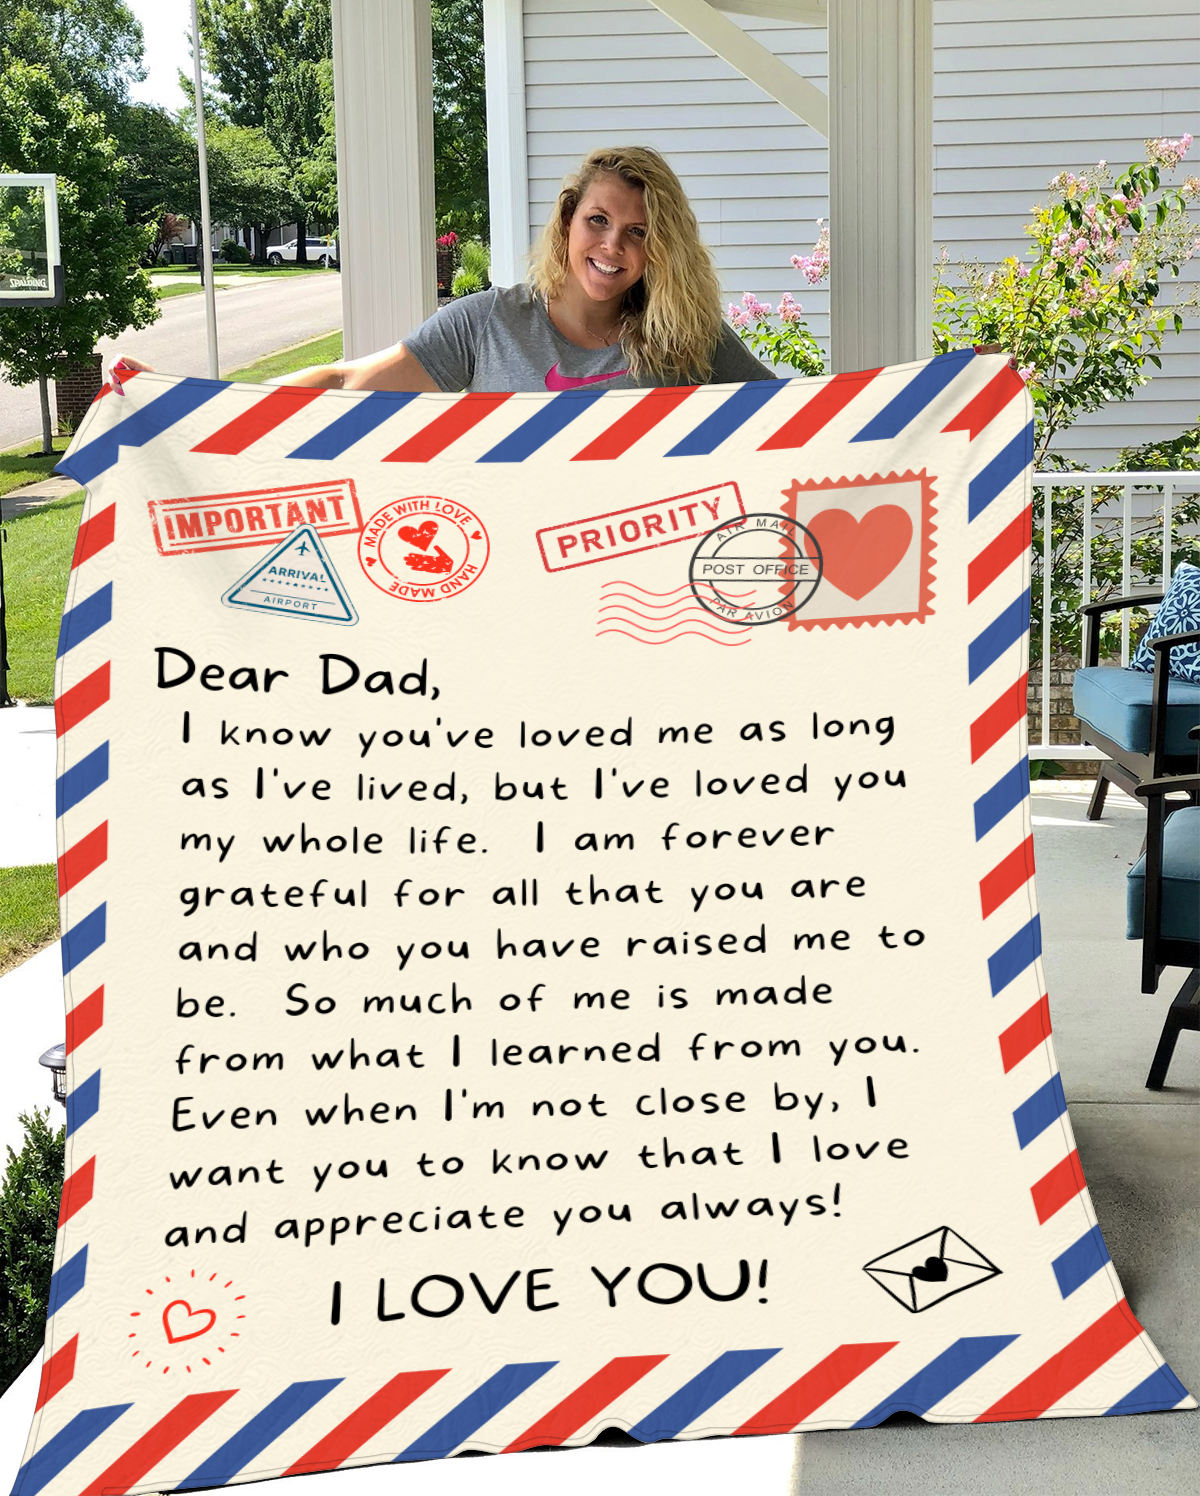 SPALDING
IMPORTANT
MADE WITH LOVE
HAND MADE
ARRIVAL
AIRPORT
PRIORITY
AIR MAIL
POST OFFICE
PAR AVION
Dear Dad,
I know you've loved me as long
as I've lived, but I've loved you
my whole life. I am forever
grateful for all that you are
and who you have raised me to
be. So much of me is made
from what I learned from you.
Even when I'm not close by, I
want you to know that I love
and appreciate you always!
I LOVE YOU!